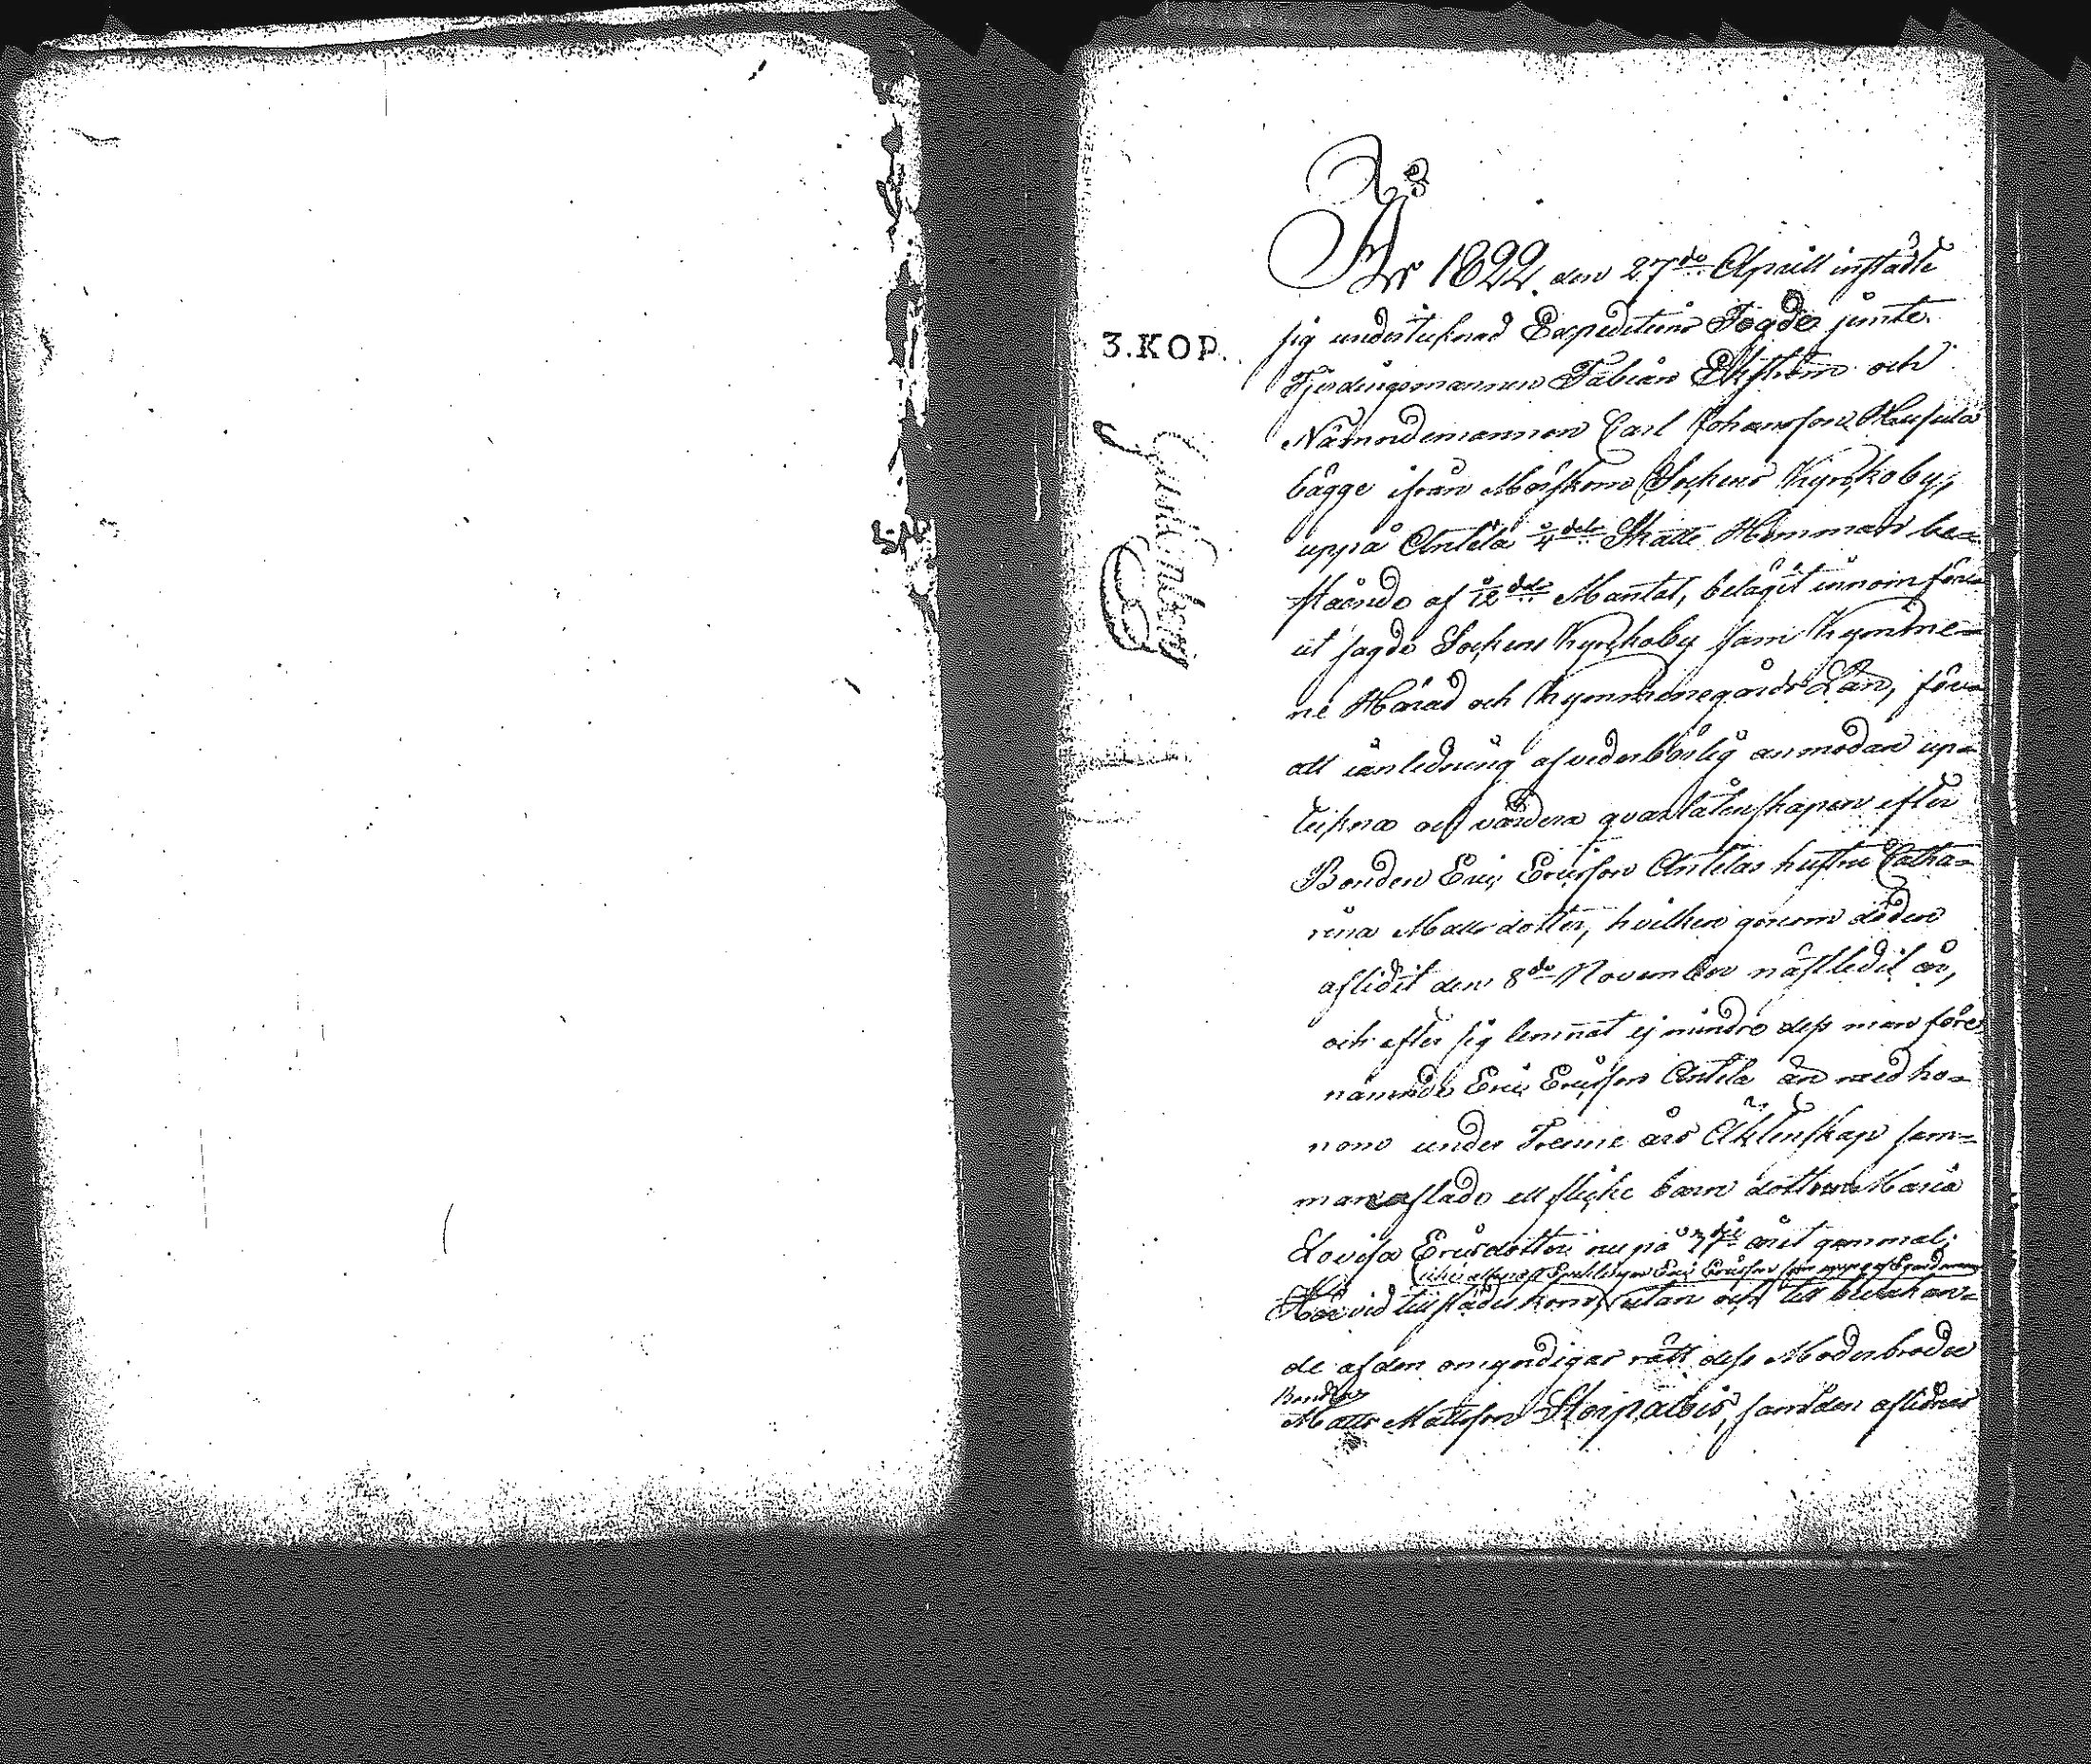 N:o 3
År 1822. den 27de Aprill instälte
sig undertecknad Expeditions Fogde jemte
3.KOP.
Fjerdingsmannen Fabian Ekström och
Nämndemannen Carl Johansson
bägge ifrån Mörskom Sockens Kyrkoby,
uppå Anttila 1/4dels Skatte Hemman be-
stående af 5/12dels Mantal, belägit innom före-
ut sagde Sockens Kyrkoby samt Kymme-
ne Härad och Kymmenegårds Län, för
att i anledning af vederbörlig anmodan up-
teckna och värdera qvarlåtenskapen efter
Bonden Eric Ericsson Anttilas hustru Catha-
rina Matsdotter, hvilken genom döden
aflidit den 8de November nästledit år,
och efter sig lemnat ej mindre dess man före-
nämnde Eric Ericsson Anttila än med ho-
nom under Trenne års Äktenskap sam-
manaflade ett flicke barn dottren Maria
Lovisa Ericsdotter nu på året gammal;
Eric Ericsson
Här vid tillstädes kom, utan och till bevakan-
de af den omyndigas rätt dess Moderbroder
Bonden
Matts Mattsson samt den aflidnas